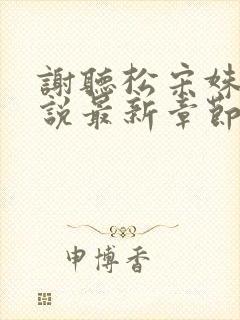 謝聽松宋妹
說最新章節
申博香